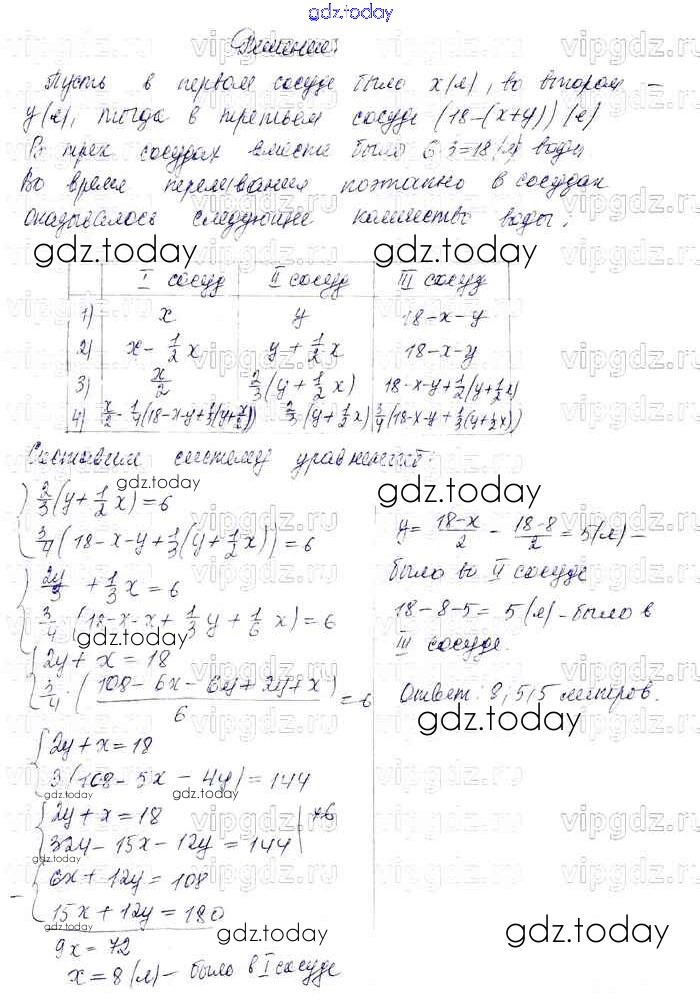 gdz.today
Решение:
Пусть в первом сосуде было x (л), во втором –
y (л), тогда в третьем сосуде (18-(x+y)) (л)
В трех сосудах вместе было 6·3=18 (л) воды
Во время переливания поэтапно в сосудах
оказывалось следующее количество воды:
gdz.today gdz.today
I сосуд II сосуд III сосуд
1) x y 18-x-y
2) x-1/2x y+1/2x 18-x-y
3) x/2 2/3(y+1/2x) 18-x-y+1/2(y+1/2x)
4) x/2-1/4(18-x-y+1/3(y+x/2)) 2/3(y+1/2x) 3/4(18-x-y+1/3(y+1/2x))
Составим систему уравнений:
2/3(y+1/2x)=6
3/4(18-x-y+1/3(y+1/2x))=6
2y/3+1/3x=6
3/4(18-x-x+1/3y+1/6x)=6
gdz.today
2y+x=18
3/4·(108-6x-6y+2y+x)/6=6
2y+x=18
3(108-5x-4y)=144
gdz.today gdz.today
2y+x=18 |·6
324-15x-12y=144
gdz.today
6x+12y=108
15x+12y=180
9x=72
x=8 (л) – было в I сосуде
gdz.today
y=(18-x)/2=(18-8)/2=5 (л) –
было во II сосуде
18-8-5=5 (л) – было в
III сосуде.
Ответ: 8, 5, 5 литров.
gdz.today
gdz.today
gdz.today
vipgdz.ru